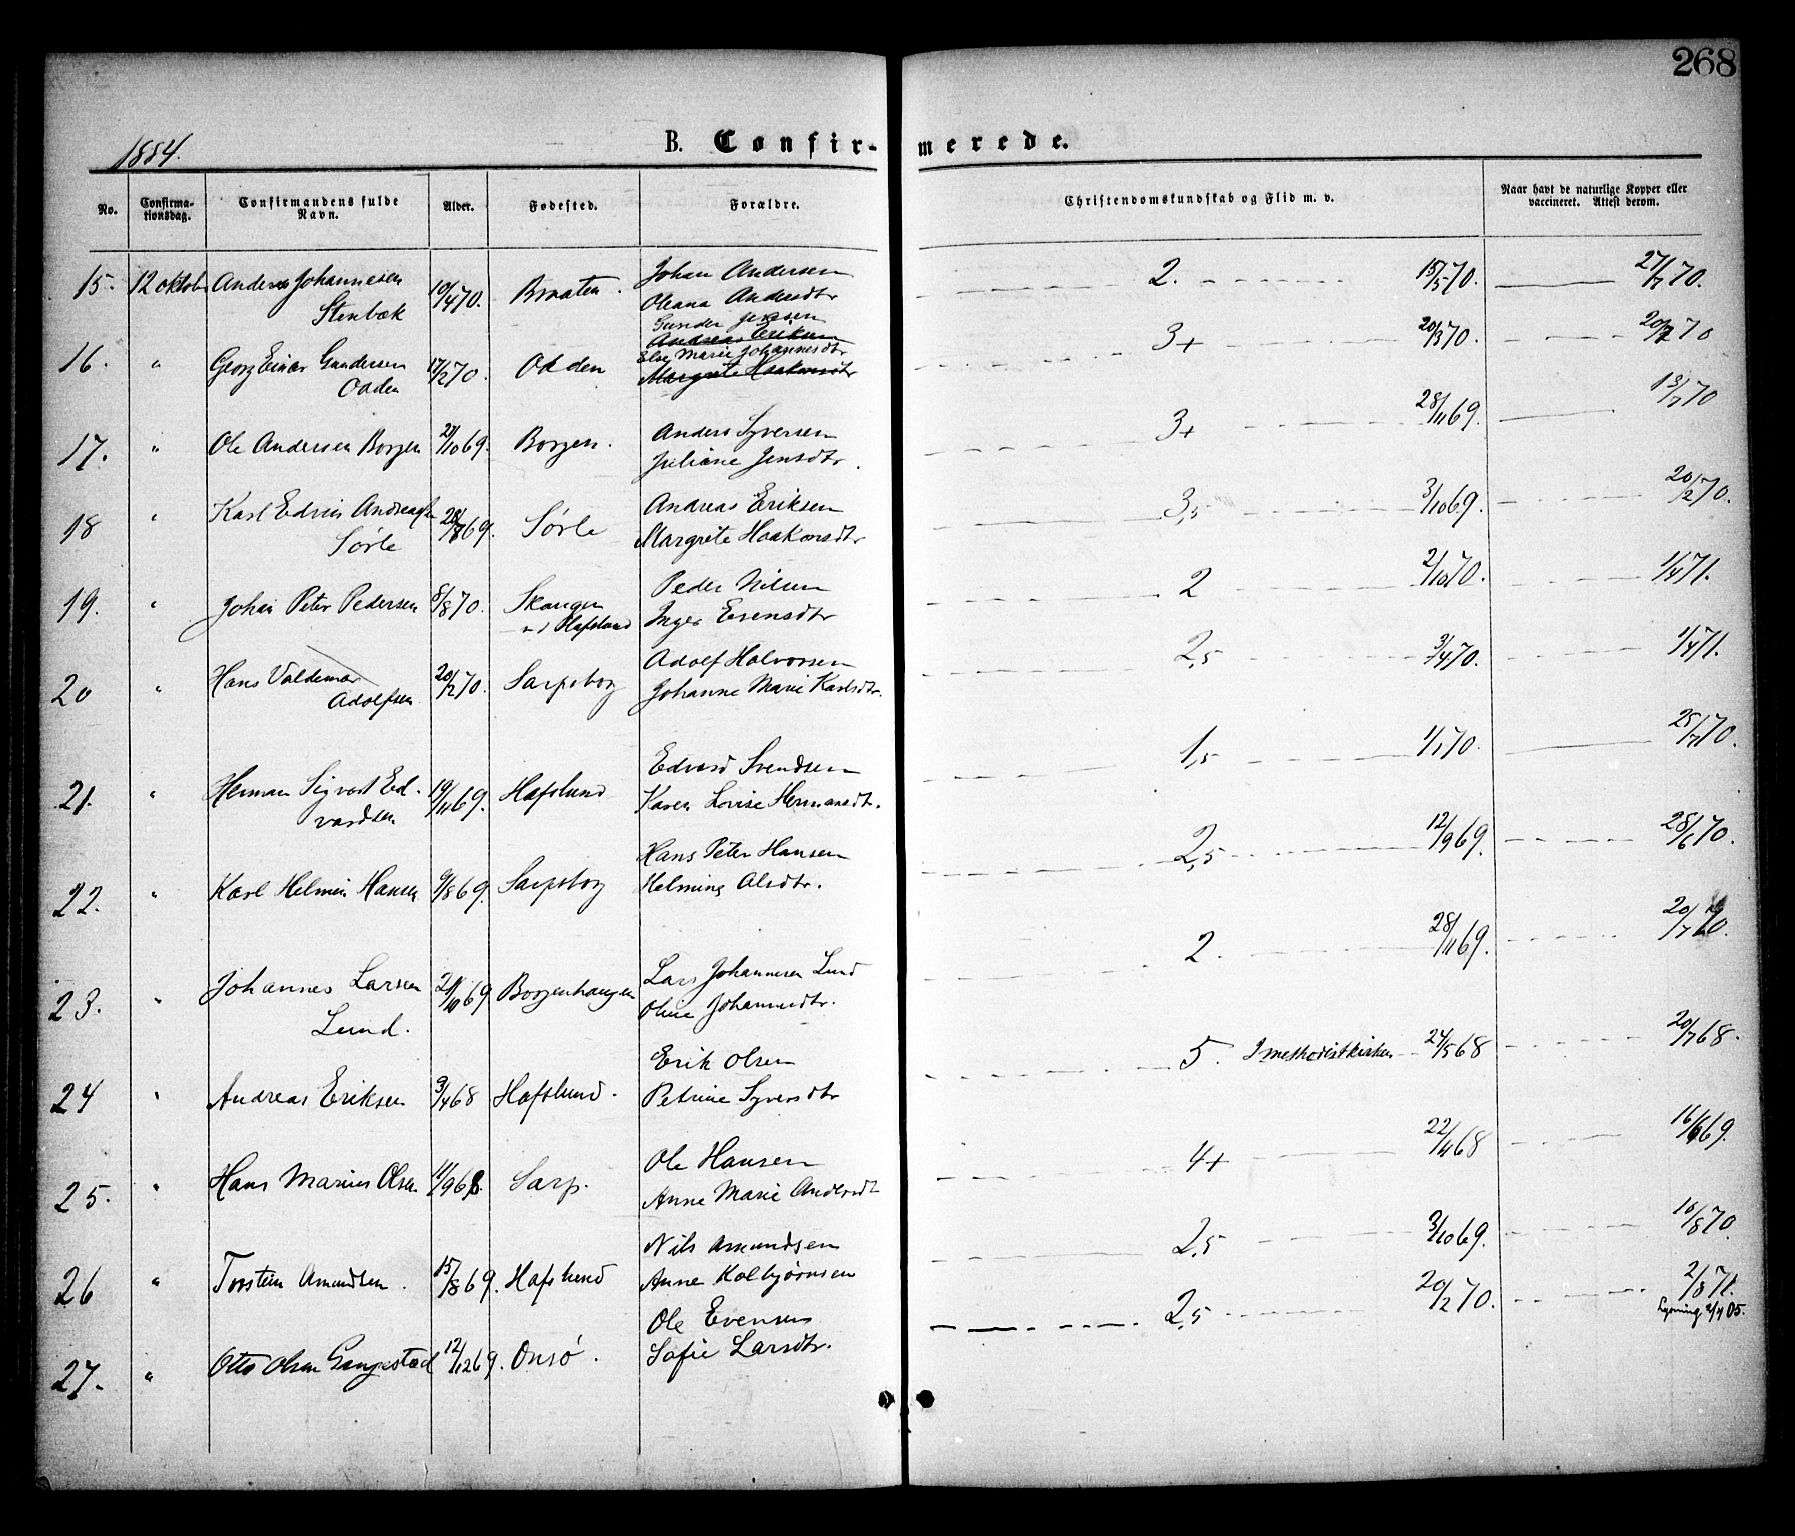 268
1884.
B. Confirmerede.
No. Confirmationsdag. Confirmandens fulde Navn. Alder. Fødested. Forældre. Christendomskundskab og Flid m. v. Naar havt de naturlige Kopper eller vaccineret. Attest derom.
15. 12 oktob Anders Johannesen Stenbæk 10/4 70. Braaten. Johan Andersen Oleana Andersdtr 2. 15/5 70. 27/7 70.
16. " Georg Einar Gundersen Okden 17/2 70. Okden Gunder Jensen Andreas Eriksen Else Marie Johannesdtr Margrete Haakonsdtr 3+ 20/3 70. 20/7 70
17. " Ole Andersen Borgen 21/10 69. Borgen. Anders Syversen Juliane Jensdtr. 3+ 28/11 69. 13/7 70
18 " Karl Edvin Andreasen Sørle 28/8 69. Sørle Andreas Eriksen Margrete Haakonsdtr 3,5 3/10 69. 20/7 70.
19. " Johan Peter Pedersen 8/8 70. Skaugen u/ Hafslund Peder Nilsen Inger Evensdtr 2 2/10 70. 1/4 71.
20 " Hans Valdemar Adolfsen 20/2 70. Sarpsborg Adolf Halvorsen Johanne Marie Karlsdtr. 2,5 3/4 70. 1/4 71.
21. " Herman Sigvart Edvardsen 19/11 69. Hafslund Edvard Svendsen Karen Lovise Hermansdtr. 1,5 1/1 70. 25/7 70.
22. " Karl Helmin Hansen 9/8 69. Sarpsborg Hans Peter Hansen Helmine Olsdtr. 2,5 12/9 69. 28/6 70.
23. " Johannes Larsen Lund. 21/10 69. Borgenhaugen Lars Johannesen Lund Oline Johannesdtr. 2. 28/11 69. 20/7 70.
24 " Andreas Eriksen 3/4 68 Hafslund. Erik Olsen Petrine Syversdtr 5. I methodistkirken 24/5 68 20/7 68.
25. " Hans Marius Olsen 11/9 68. Sarp. Ole Hansen Anne Marie Andersdtr 4+ 22/11 68 16/6 69.
26 " Torstein Amundsen. 15/8 69. Hafslund Nils Amundsen Anne Kolbjørnsen 2,5 3/10 69. 10/8 70.
27. " Otto Olsen Gangestad 12/12 69. Onsø. Ole Evensen Sofie Larsdtr. 2,5 20/2 70. 2/8 71.
Lysning 2/4 05.